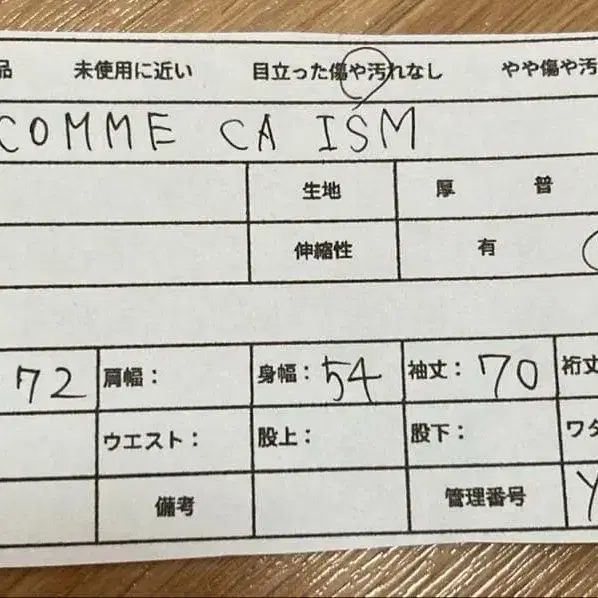 品 未使用に近い 目立った傷や汚れなし やや傷や汚
COMME CA ISM
生地 厚 普
伸縮性 有
72 肩幅: 身幅: 54 袖丈: 70 裄丈
ウエスト: 股上: 股下: ワタ
備考 管理番号 Y